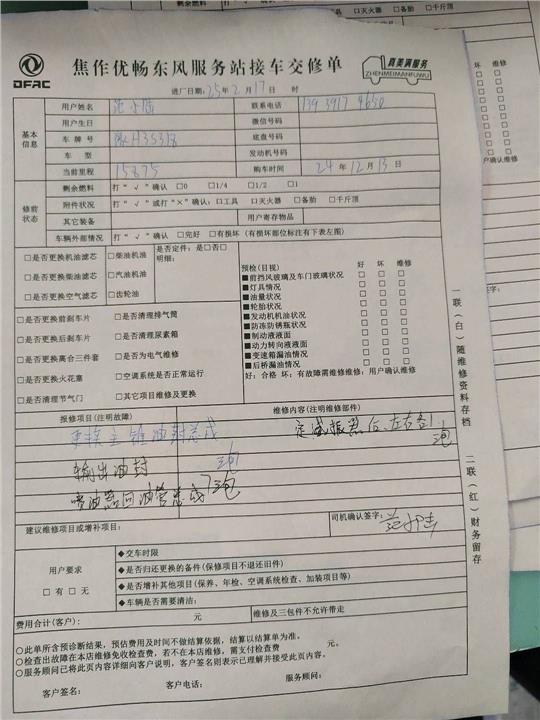 DFAC
焦作优畅东风服务站接车交修单
真美满服务
ZHENMEIMANFUWU
进厂日期：25年2月17日 时
基本信息
用户姓名 联系电话
用户生日 微信号码
车牌号 H35318 底盘号码
车型 发动机号码
当前里程 15875 购车时间 24年12月13日
修前状态
剩余燃料 打“√”确认 □0 □1/4 □1/2 □1
附件状况 打“√”或打“×”确认：□工具 □灭火器 □备胎 □千斤顶
其它装备 用户寄存物品
车辆外部情况 打“√”确认 □完好 □有损坏（有损坏部位标注有下表左图）
□是否更换机油滤芯 □柴油机油
□是否更换柴油滤芯 □汽油机油
□是否更换空气滤芯 □齿轮油
是否定件：是□否□
明细：
□是否更换前刹车片 □是否清理排气筒
□是否更换后刹车片 □是否清理尿素箱
□是否更换离合三件套 □是否为电气维修
□是否更换火花塞 □空调系统是否正常运行
□是否清理节气门 □其它项目维修及更换
预检（目视） 好 坏 维修
■前挡风玻璃及车门玻璃状况 □ □ □
■灯具情况 □ □ □
■油量状况 □ □ □
■轮胎状况 □ □ □
■发动机机油状况 □ □ □
■防冻防锈瓶状况 □ □ □
■制动液液面 □ □ □
■动力转向液液面 □ □ □
■变速箱漏油情况 □ □ □
■后桥漏油情况 □ □ □
好：合格 坏：有故障需维修维修：用户确认维修
报修项目（注明故障） 维修内容（注明维修部件）
更换主锥油封总成
三包
输出油封
喷油器回油管总成 三包
定减振器后、左右各1
三包
建议维修项目或增补项目：
司机确认签字：
用户要求
□有 □无
◆交车时限
◆是否归还更换的备件（保修项目不退还旧件）
◆是否增补其他项目（保养、年检、空调系统检查、加装项目等）
◆车辆是否需要清洁：
费用合计（客户）： 元 维修及三包件不允许带走
○此单所含预诊断结果，预估费用及时间不做结算依据，结算以结算单为准。
○检查出故障在本店维修免收检查费，若不在本店维修，需支付检查费 元。
○服务顾问已将此页内容详细向客户说明，客户签名则表示已理解并接受此页内容。
客户签名： 客户电话： 服务顾问：
一联（白）随维修资料存档
二联（红）财务留存
□灭火器 □备胎 □千斤顶
坏 维修